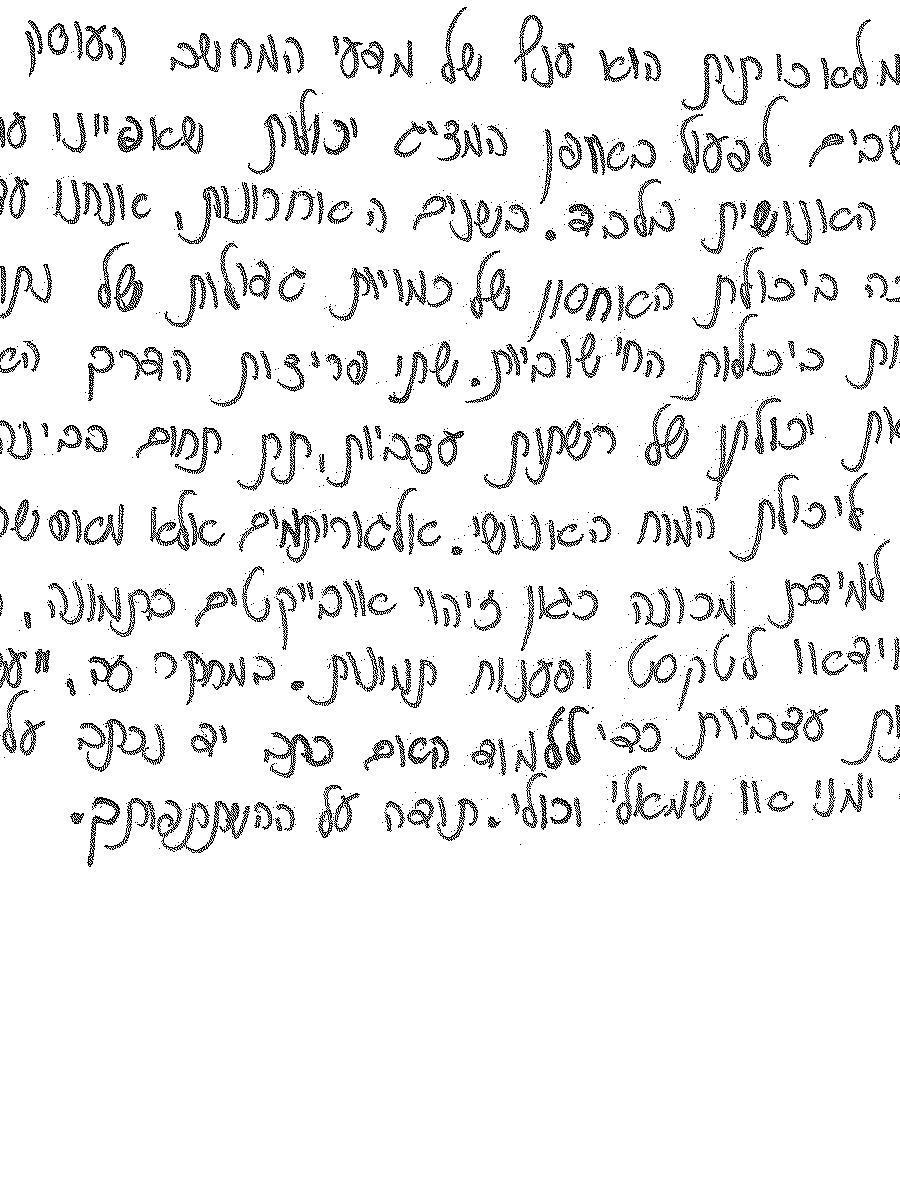 מלאכותית הוא ענף של מדעי המחשב העוסק
שבים לפעול באופן המציג יכולות שאפיינו עו
האנושית בלבד. בשנים האחרונות, אנחנו עד
יה ביכולת האחסון של כמויות גדולות של נתו
ות ביכולות החישוביות. שתי פריצות הדרך הא
את יכולתן של רשתות עצביות, תת תחום בבינה
ליכולת המוח האנושי. אלגוריתמים אלא מאופש
למידת מכונה כגון זיהוי אובייקטים בתמונה,
וידאו לטקסט ופענוח תמונות. במחקר זה, "עש
ות עצביות כדי ללמוד האם כתב יד נכתב על
ימני או שמאלי וכולי. תודה על ההשתתפותך.